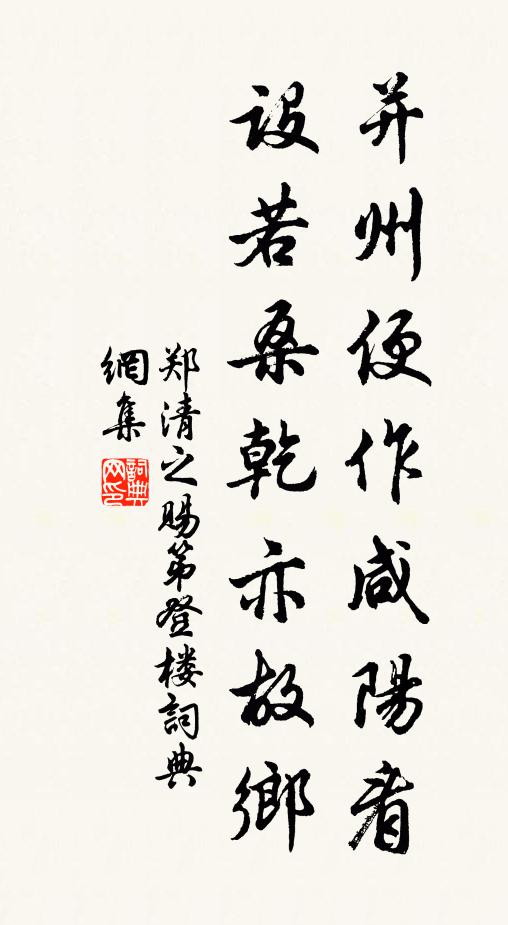 并州便作咸陽看
設若桑乾亦故鄉
郑清之賜第登楼詞典
網集
詞典網印